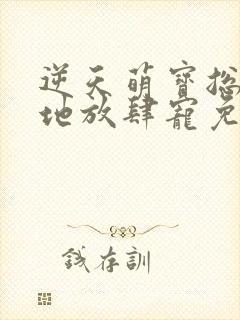 逆天萌寶
地放肆寵免
錢存訓